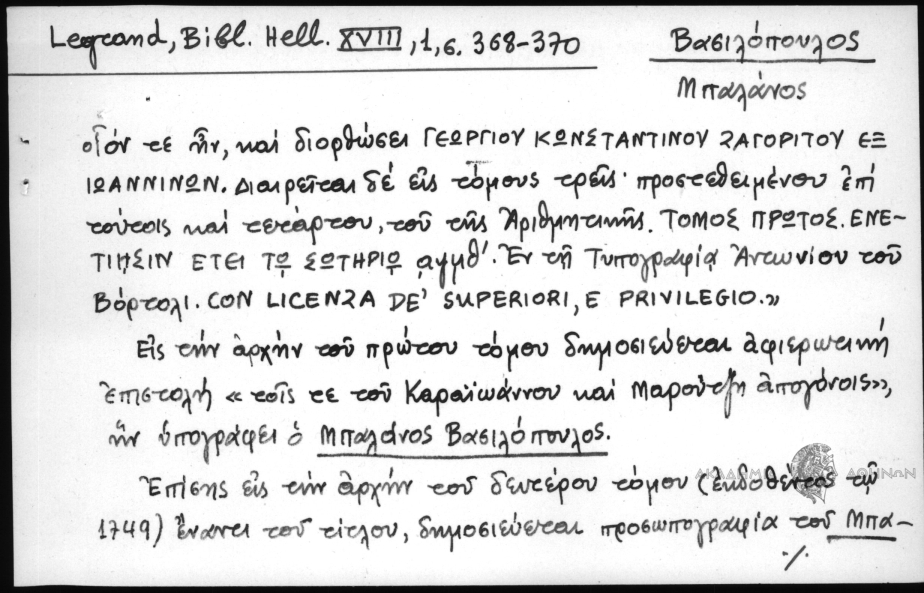 Legrand, Bibl. Hell. XVIII, 1, σ. 368-370
Βασιλόπουλος
Μπαλάνος
οἷόν τε ἦν, καὶ διορθώσει ΓΕΩΡΓΙΟΥ ΚΩΝΣΤΑΝΤΙΝΟΥ ΖΑΓΟΡΙΤΟΥ ΕΞ
ΙΩΑΝΝΙΝΩΝ. Διαιρεῖται δέ εἰς τόμους τρεῖς· προστεθειμένου ἐπὶ
τούτοις καὶ τετάρτου, τοῦ τῆς Ἀριθμητικῆς. ΤΟΜΟΣ ΠΡΩΤΟΣ. ΕΝΕ-
ΤΙΗΣΙΝ ΕΤΕΙ Τῼ ΣΩΤΗΡΙῼ ͵αψμθʹ. Ἐν τῇ Τυπογραφίᾳ Ἀντωνίου τοῦ
Βόρτολι. CON LICENZA DE' SUPERIORI, E PRIVILEGIO.»
Εἰς τὴν ἀρχὴν τοῦ πρώτου τόμου δημοσιεύεται ἀφιερωτικὴ
ἐπιστολὴ «τοῖς τε τοῦ Καραϊωάννου καὶ Μαρούτζη ἀπογόνοις»,
ἣν ὑπογράφει ὁ Μπαλάνος Βασιλόπουλος.
Ἐπίσης εἰς τὴν ἀρχὴν τοῦ δευτέρου τόμου (ἐκδοθέντος τῷ
1749) ἔναντι τοῦ τίτλου, δημοσιεύεται προσωπογραφία τοῦ Μπα-
·/.
ΑΚΑΔΗΜ ΑΘΗΝΩΝ